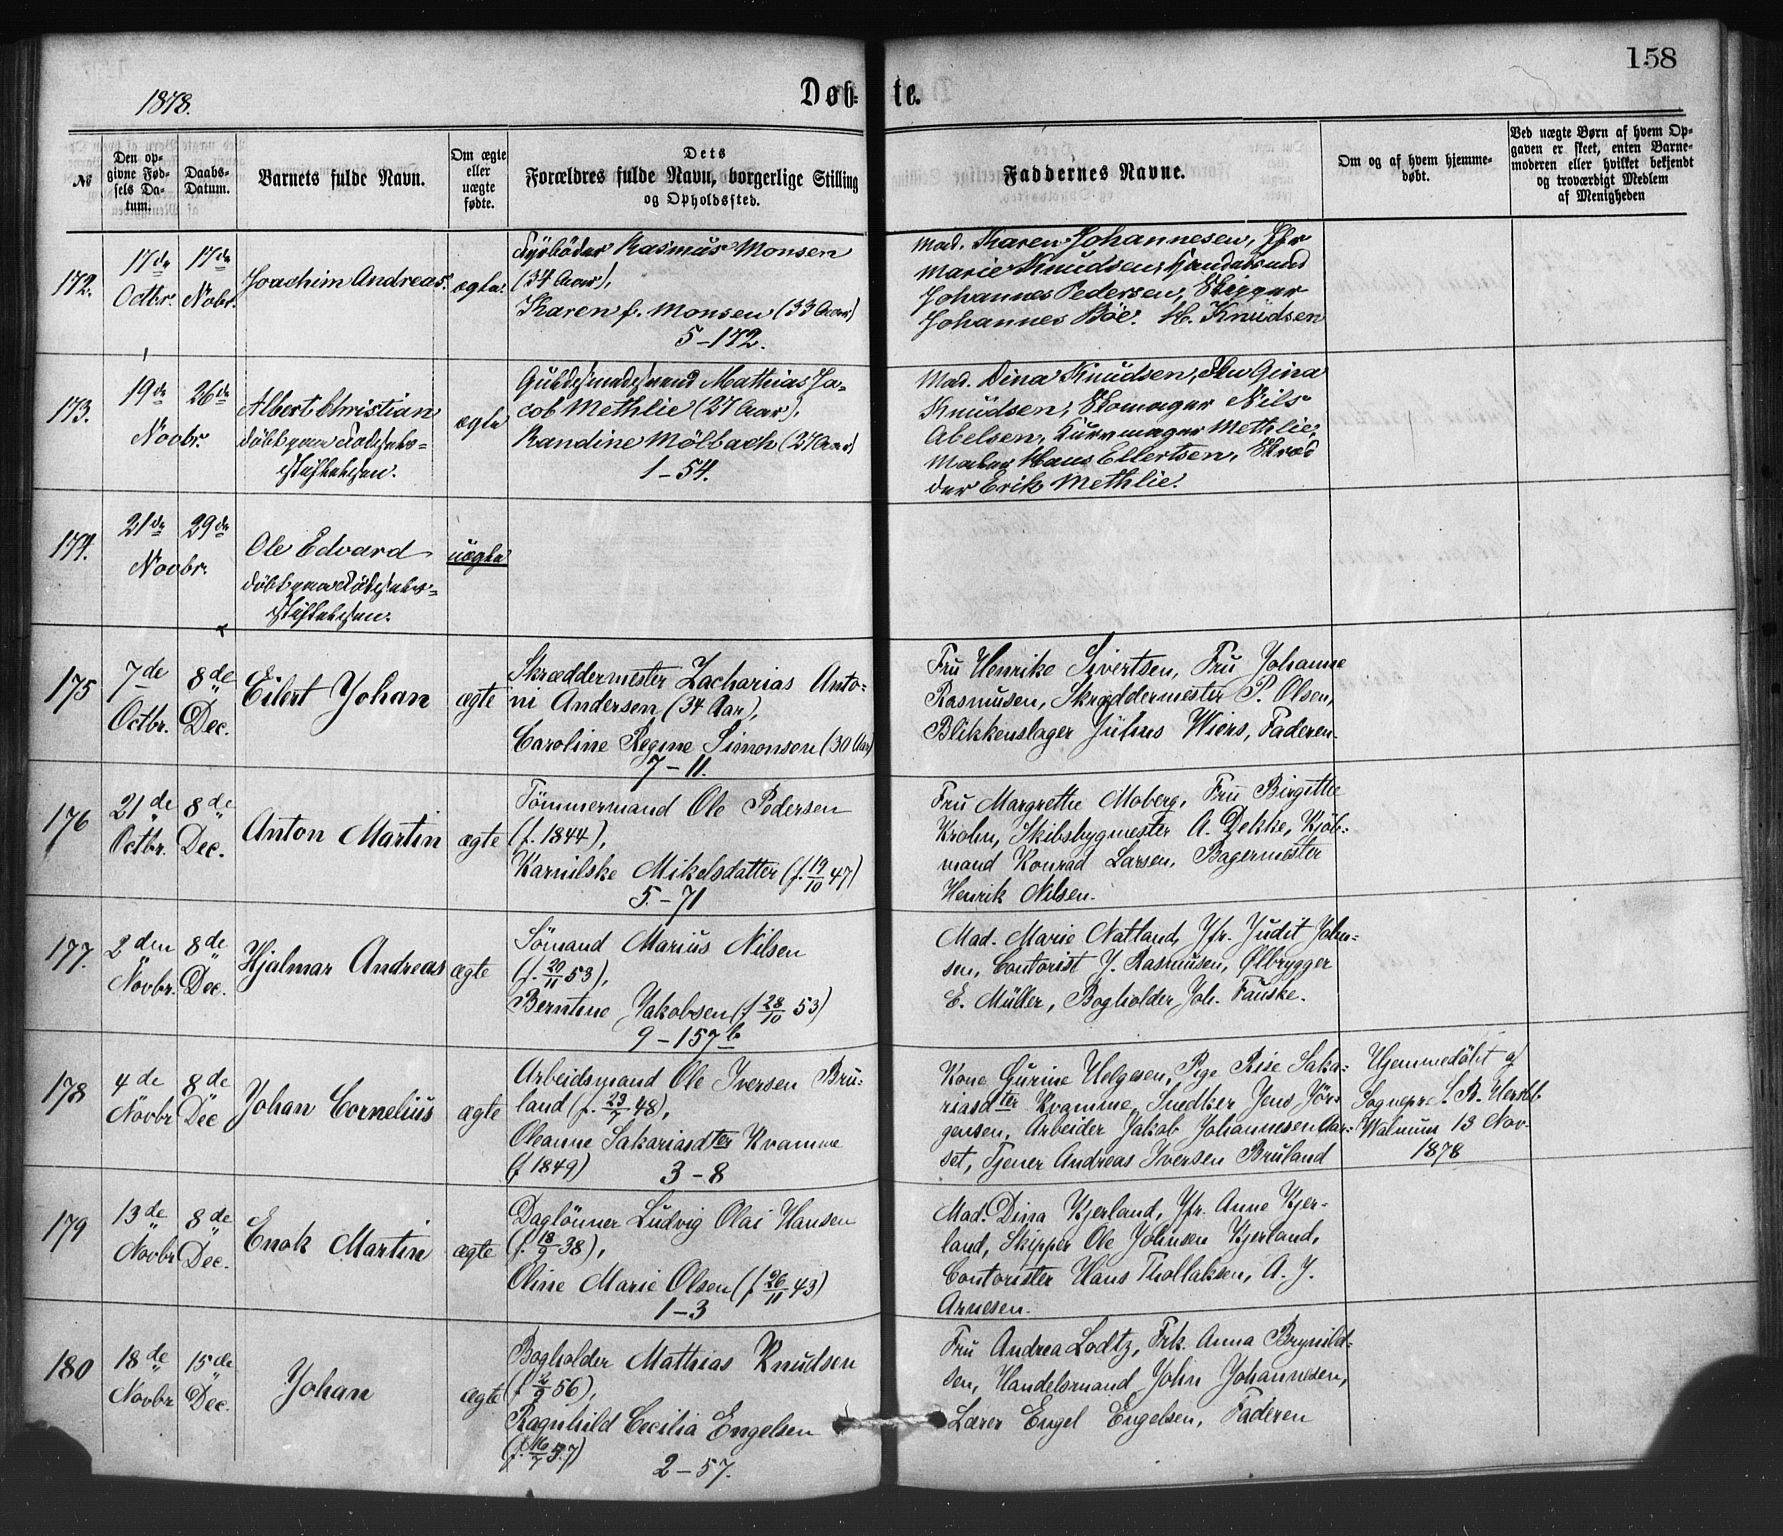 158
1878.
Døb-te.
№
Den op-
givne Fød-
sels Da-
tum.
Daabs-
Datum.
Barnets fulde Navn.
Om ægte
eller
uægte
fødte.
Dets
Forældres fulde Navn, borgerlige Stilling
og Opholdssted.
Faddernes Navne.
Om og af hvem hjemme-
døbt.
Ved uægte Børn af hvem Op-
gaven er skeet, enten Barne-
moderen eller hvilket bekjendt
og troværdigt Medlem
af Menigheden
172.
17de
Octbr.
17de
Novbr.
Joachim Andreas.
ægte.
Fyrbøder Rasmus Monsen
(34 Aar),
Karen f. Monsen (33 Aar)
5-172.
Mad. Karen Johannesen, Jfr
Marie Knudsen,
Johannes Pedersen, Skipper
Johannes Böe. H. Knudsen
173.
19de 26de
Novbr.
Albert Christian
døbt paa Fødsels-
stiftelsen.
ægte
Guldsmedsvend Mathias Ja-
cob Methlie (27 Aar),
Randine Mölbach (27 Aar)
1-54.
Mad. Dina Knudsen, Gina
Knudsen, Skomager Nils
Abelsen, Kurvmager Methlie,
Maler Hans Ellertsen, Skræd
der Erik Methlie.
174.
21de 29de
Novbr.
Ole Edvard
døbt paa Fødsels-
stiftelsen.
uægte
175
7de
Octbr.
8de
Dec.
Eilert Johan
ægte
Skræddermester Zacharias Anto-
ni Andersen (34 Aar),
Caroline Regine Simonsen (30 Aar)
7-11.
Fru Henrike Sivertsen, Fru Johanne
Rasmusen, Skræddermester P. Olsen,
Blikkenslager Julius Wiers, Faderen.
176
21de
Octbr.
8de
Dec.
Anton Martin
ægte
Tømmermand Ole Pedersen
(f. 1844),
Karnilske Mikelsdatter (f. 19/10 47)
5-71
Fru Margrethe Moberg, Fru Birgitte
Krohn, Skibsbygmester A. Dekke, Kjöb-
mand Konrad Larsen, Bagermester
Henrik Nilsen.
177.
2den
Novbr.
8de
Dec.
Hjalmar Andreas
ægte
Sømand Marius Nilsen
(f. 20/11 53),
Berntine Jakobsen (f 28/10 53)
9-157b
Mad. Marie Natland, Jfr. Judit John-
sen, Contorist J. Rasmusen, Ølbrygger
E. Müller, Bogholder Joh. Fauske.
178
4de
Novbr
8de
Dec
Johan Cornelius
ægte
Arbeidsmand Ole Iversen Bru-
land (f. 23/7 48),
Oleanne Sakariasdter Kvamme
(f 1849) 3-8
Kone Gurine Helgesen, Pige Rise Saka-
riasdter Kvamme, Snedker Jens Jör-
gensen, Arbeider Jakob Johannesen Aar-
set, Tjener Andreas Iversen Bruland
Hjemmedöbt af
Sognepr.
13 Nov.
1878
179
13de
Novbr
8de
Dec.
Enok Martin
ægte
Daglønner Ludvig Olai Hansen
(f. 18/9 38),
Oline Marie Olsen (f 26/11 43)
1-3
Mad. Dina Kjerland, Jfr. Anne Kjer-
land, Skipper Ole Johnsen Kjerland,
Contorister Hans Thollaksen, A. J.
Arnesen.
180
18de
Novbr
15de
Dec.
Johan
ægte
Bogholder Mathias Knutsen
56),
Ragnhild Cecilia Engelsen
(f. 16/7 57)
2-57.
Fru Andrea Lodtz, Frk. Anna Brynild-
sen, Handelsmand John Johannesen,
Lærer Engel Engelsen, Faderen